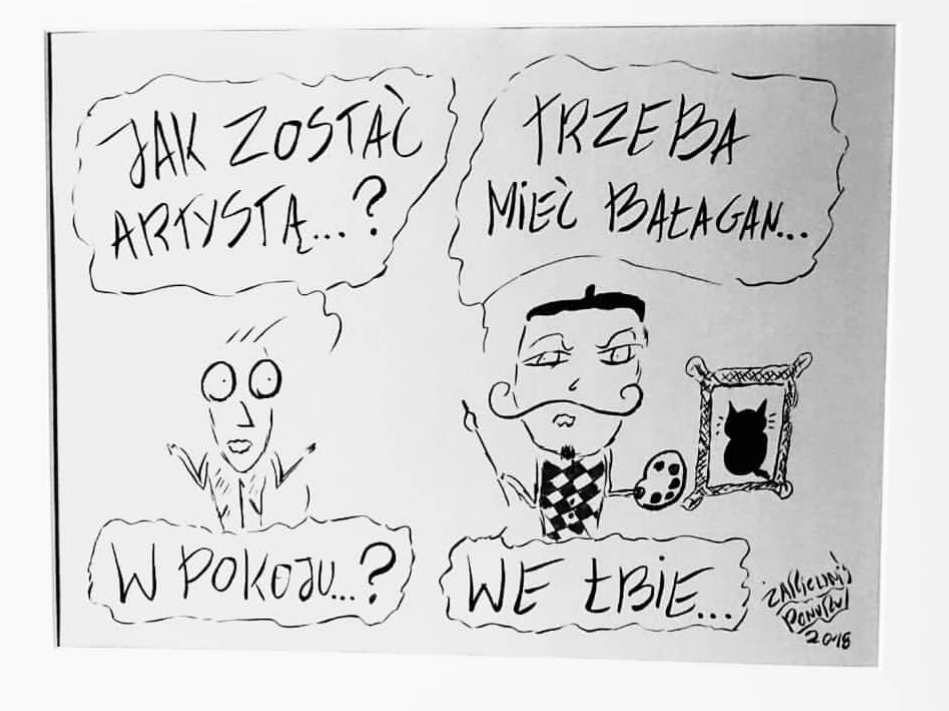 JAK ZOSTAĆ
ARTYSTĄ...?
TRZEBA
MIEĆ BAŁAGAN...
W POKOJU...?
WE ŁBIE...
2018